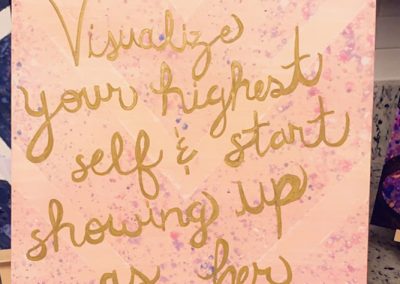 Visualize
your highest
self & start
showing up
as her